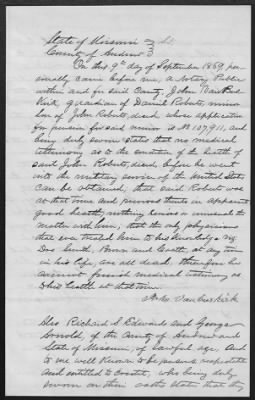 State of Missouri } ss.
County of Andrew }
On this 9th day of September 1869, per-
sonally came before me, a Notary Public
within and for said County, John Van Bus
Kirk, guardian of Daniel Roberts, minor
Son of John Roberts, deced. whose application
for pension for said minor is No 157,911, and
being duly sworn states that no medical
testimony as to the condition of the health of
said John Roberts, deced. before he went
into the military service of the United States
can be obtained, that said Roberts was
at that time and previous thereto in apparent
good health, nothing serious or unusual the
matter with him, that the only physicians
that ever treated him to his knowledge
Drs Smith, and at any time
in his life, are all dead. therefore he
cannot furnish medical testimony as
to his health at that time.
John Vanbuskirk
Also Richard S Edwards and George
Arnold, of the County of Andrew and
State of Missouri, of lawful age, and
to me well known to be persons respectable
and entitled to credit, who being duly
sworn on their oaths state that they